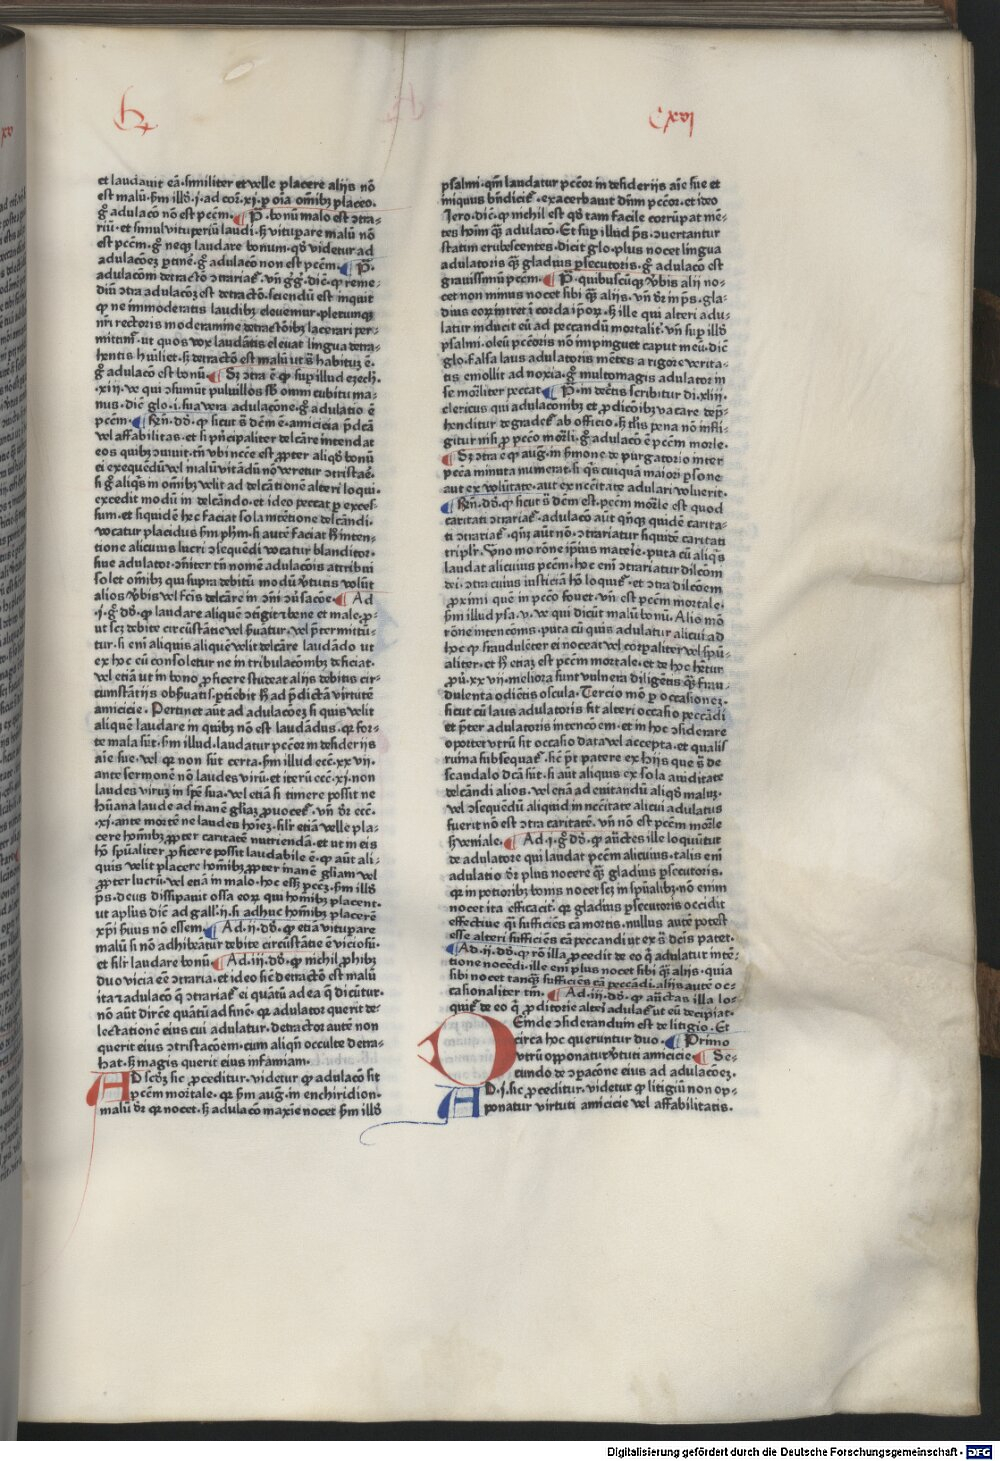 Cxvi
et laudauit eā· similiter et velle placere alijs nō
est malū· s̄m illd̓· j· ad cor̄· xj· ꝑ oīa om̄ibꝫ placeo·
g̊ adulacō nō est pctm̄· ¶ P̄· bonū malo est ↄtra-
riū· et simul vituꝑiū laudi· sꝫ vituꝑare malū nō
est pctm̄· g̊ neqꝫ laudare bonum· qd̓ videtur ad
adulacōeꝫ ꝑtinē· g̊ adulacō non est pctm̄· ¶ P̄·
adulacōm detractō ↄtrariat᷒· vn̄ g̓g̓· dic̄· ꝙ reme-
diū ↄtra adulacōeꝫ est detractō· sciendū est inquit
ꝙ ne immoderatis laudibꝫ eleuemur· plerumqꝫ
nr̄i rectoris moderamine detractōibꝫ lacerari per-
mittim᷒· ut quos vox laudātis eleuat lingua detra-
hentis hūiliet· sꝫ detractō est malū ut s̄ habitū ē·
g̊ adulacō est bonū· ¶ Sꝫ ↄtra ē ꝙ suꝑ illud eꝫech̓·
xiij· ve qui ↄsuunt puluillos sb̓ omni cubitu ma-
nus· dic̄ glo· i· suaui adulacōne· g̊ adulatio ē
pctm̄· ¶ Rn̄· dd̓· ꝙ sicut s̄ dc̄m ē· amicicia p̄dcā
vel affabilitas· et si pn̄cipaliter delcāre intendat
eos quibꝫ ↄuiuit· tn̄ vbi necce est ꝓpter aliqd̓ bonū
ei exequēdū vel malū vitādū nō veretur ↄtristare·
si g̊ aliq̓s in om̄ibꝫ velit ad delcātionē alteri loqui·
excedit modū in delcāndo· et ideo peccat ꝑ exces-
sum· et siquidē hec faciat sola intētione delcādi·
vocatur placidus s̄m ph̄m· si autē faciat h̓ inten-
tione alicuius lucri ↄsequēdi vocatur blanditor·
siue adulator· ↄīter tn̄ nomē adulacōis attribui
solet om̄ibꝫ qui supra debitū modū v̓tutis volūt
alios v̓bis vel fc̄is delcāre in ↄn̄i ↄūsacōe· ¶ Ad
·j· g̊ dd̓· ꝙ laudare aliquē ↄtigit et bene et male· ꝓ
ut scꝫ debite circūstātie vel ẜuatur· vel p̄termittū-
tur· si enī aliquis aliquē velit delcāre laudādo ut
ex hoc eū consoletur ne in tribulacōnibꝫ deficiat·
vel etiā ut in bono ꝓficere studeat alijs debitis cir-
cumstātijs obẜuatis· ꝑtinebit h̓ ad p̄dictā virtutē
amicicie· Pertinet aūt ad adulacōeꝫ si quis velit
aliquē laudare in quibꝫ nō est laudādus· qꝛ for-
te mala sūt· s̄m illud· laudatur pctōr in desiderijs
aīe sue· vel qꝛ non sūt certa· s̄m illud ecc̄· xxvij·
ante sermonē nō laudes virū· et iterū ecc̄· xj· non
laudes virum in spē sua· vel etiā si timere possit ne
hūana laude ad inanē gliaꝫ ꝓuocet᷒· vn̄ dr̄ ecc̄·
·xj· ante mortē ne laudes hoieꝫ· silr̄ etiā velle pla-
cere homībꝫ ꝓpter caritatē nutriendā· et ut in eis
hō spūaliter ꝓficere possit laudabile ē· ꝙ aūt ali-
quis velit placere hominibꝫ ꝓpter inanē gliam vel
ꝓpter lucrū· vel etiā in malo· hoc esset pctꝫ· s̄m illd̓
p̄s· deus dissipauit ossa eoꝝ qui hominibꝫ placent·
ut apl̓us dic̄ ad gall̓· ij· si adhuc hominibꝫ placerē
xp̄i ẜuus nō essem· ¶ Ad· ij· dd̓· ꝙ etiā vituꝑare
malū si nō adhibeātur debite circūstātie ē viciosū·
et silr̄ laudare bonū· ¶ Ad· iij· dd̓· ꝙ nichil ꝓhibꝫ
duo vicia eē ↄtraria· et ideo sic̄ detractō est malū
ita et adulacō q̄ ↄtrariat᷒ ei quātū ad ea q̄ dicūtur·
nō aūt dircē quātū ad finē· qꝛ adulator querit de-
lectationē eius cui adulatur· detractor autē non
querit eius ↄtristacōem· cum aliqn̄ occulte detra-
hat· sꝫ magis querit eius infamiam·
AD scd̓ꝫ sic ꝓceditur· videtur ꝙ adulacō sit
pctm̄ mortale· qꝛ s̄m aug̓· in enchiridion·
malū dr̄ qꝛ nocet· sꝫ adulacō maxīe nocet s̄m illd̓
psalmi· qm̄ laudatur pctōr in desiderijs aīe sue et
iniquus bn̄dicit᷒· exacerbauit dn̄m pctōr· et ideo
Jero· dic̄· ꝙ nichil est qd̓ tam facile corrūpat mē-
tes hoīm q̄ȝ adulacō· Et suꝑ illud p̄s· ↄuertantur
statim erubescentes· dicit glo· plus nocet lingua
adulatoris q̄ȝ gladius ꝑsecutoris· g̊ adulacō est
grauissimū pctm̄· ¶ P̄· quibuscūqꝫ v̓bis alij no-
cet non minus nocet sibi q̄ȝ alijs· vn̄ dr̄ in p̄s· gla-
dius eoꝝ intret in corda ipoꝝ· sꝫ ille qui alteri adu-
latur inducit eū ad peccandū mortalit᷒· vn̄ suꝑ illd̓
psalmi· oleū pctōris nō impinguet caput meū· dic̄
glo· falsa laus adulatoris mētes a rigore verita-
tis emollit ad noxia· g̊ multomagis adulator in
se mor̄liter peccat· ¶ P̄· in dec̄tis scribitur di· xliij·
clericus qui adulacōnibꝫ et ꝓdicōibꝫ vacare dep̄-
henditur degradet᷒ ab officio· sꝫ tl̓is pena nō infli-
gitur nisi ꝓ pctō mor̄li· g̊ adulacō ē pctm̄ mor̄le·
¶ Sꝫ ↄtra ē qꝛ aug̓· in s̄mone de purgatorio inter
pctā minuta numerat· si q̓s cuiquā maiori ꝑsone
aut ex volūtate· aut ex nc̄citate adulari voluerit·
¶ Rn̄· dd̓· ꝙ sicut s̄ dc̄m est· pctm̄ mor̄le est quod
caritati ↄtrariat᷒· adulacō aūt qn̄qꝫ quidē carita-
ti ↄtrariat᷒· qn̄qꝫ aūt nō· ↄtrariatur siquidē caritati
tripl̓r· Vno mō rōne ip̄ius materie· puta cū aliq̓s
laudat alicuius pctm̄· hoc enī ↄtrariatur dilcōni
dei· ↄtra cuius iusticiā hō loquit᷒· et ↄtra dilcōem
ꝓximi quē in pctō fouet· vn̄ est pctm̄ mortale·
s̄m illud ysa· v· ve qui dicūt malū bonū· Alio mō
rōne intencōnis· puta cū quis adulatur alicui ad
hoc ꝙ fraudulēter ei noceat vel corꝑaliter vel spū-
aliter· et h̓ etiaꝫ est pctm̄ mortale· et de hoc h̓etur
ꝓū· xxvij· meliora sunt vulnera diligētis q̄ȝ frau-
dulenta odiētis oscula· Tercio mō ꝑ occasioneꝫ·
sicut cū laus adulatoris fit alteri occasio peccādi
et p̄ter adulatoris intencōem· et in hoc ↄsiderare
oportet vtrū sit occasio data vel accepta· et qualis
ruina subsequat᷒· sic̄ p̄t patere ex hijs que s̄ de
scandalo dcā sūt· si aūt aliquis ex sola auiditate
delcādi alios· vel etiā ad euitandū aliqd̓ maluꝫ·
vel ↄsequēdū aliquid in nc̄citate alicui adulatus
fuerit nō est ↄtra caritatē· vn̄ nō est pctm̄ mor̄le
sꝫ veniale· ¶ Ad· j· g̊ dd̓· ꝙ auc̄tes ille loquūtur
de adulatore qui laudat pctm̄ alicuius· talis enī
adulatio dr̄ plus nocere q̄ȝ gladius ꝑsecutoris·
qꝛ in potioribꝫ bonis nocet scꝫ in spūalibꝫ· nō enim
nocet ita efficacit᷒· qꝛ gladius ꝑsecutoris occidit
effectiue q̄si sufficiēs cā mortis· nullus autē potest
esse alteri sufficiēs cā peccandi ut ex s̄ dc̄is patet·
¶ Ad· ij· dd̓· ꝙ rō illa ꝓcedit de eo q̄ adulatur intē-
tione nocēdi· ille enī plus nocet sibi q̄ȝ alijs· quia
sibi nocet tanq̄ȝ sufficiēs cā peccādi· alijs autē oc-
casionaliter tm̄· ¶ Ad· iij· dd̓· ꝙ auc̄tas illa lo-
quit᷒ de eo q̄ ꝓditorie alteri adulat᷒ ut eū decipiat·
DEinde ↄsiderandum est de litigio· Et
circa hoc queruntur duo· ¶ Primo
vtrū opponatur v̓tuti amicicie· ¶ Se-
cundo de ↄꝑacōne eius ad adulacōeꝫ·
AD· j· sic ꝓceditur· videtur ꝙ litigiū non op-
ponatur virtuti amicicie vel affabilitatis·
Digitalisierung gefördert durch die Deutsche Forschungsgemeinschaft - DFG